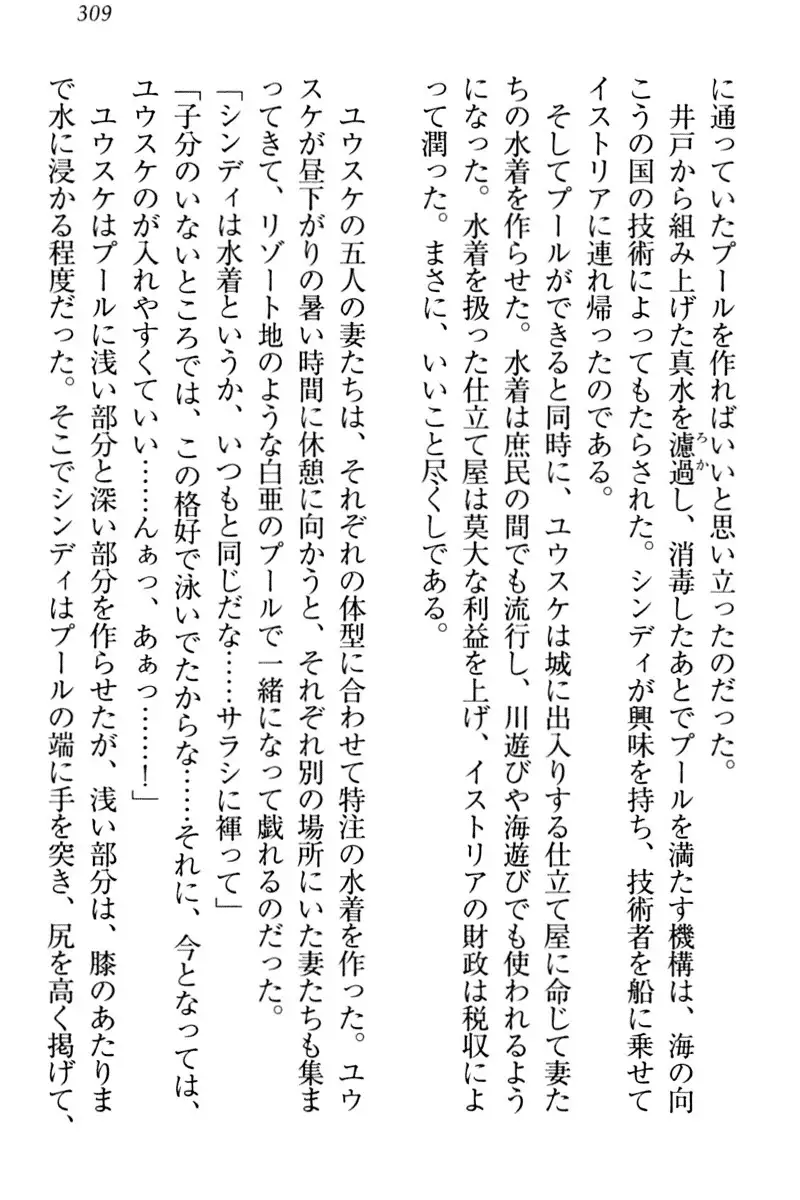 309
に通っていたプールを作ればいいと思い立ったのだった。
　井戸から組み上げた真水を濾過し、消毒したあとでプールを満たす機構は、海の向
こうの国の技術によってもたらされた。シンディが興味を持ち、技術者を船に乗せて
イストリアに連れ帰ったのである。
　そしてプールができると同時に、ユウスケは城に出入りする仕立て屋に命じて妻た
ちの水着を作らせた。水着は庶民の間でも流行し、川遊びや海遊びでも使われるよう
になった。水着を扱った仕立て屋は莫大な利益を上げ、イストリアの財政は税収によ
って潤った。まさに、いいこと尽くしである。
　ユウスケの五人の妻たちは、それぞれの体型に合わせて特注の水着を作った。ユウ
スケが昼下がりの暑い時間に休憩に向かうと、それぞれ別の場所にいた妻たちも集ま
ってきて、リゾート地のような白亜のプールで一緒になって戯れるのだった。
「シンディは水着というか、いつもと同じだな……サラシに褌って」
「子分のいないところでは、この格好で泳いでたからな……それに、今となっては、
ユウスケのが入れやすくていい……んぁっ、あぁっ……！」
　ユウスケはプールに浅い部分と深い部分を作らせたが、浅い部分は、膝のあたりま
で水に浸かる程度だった。そこでシンディはプールの端に手を突き、尻を高く掲げて、